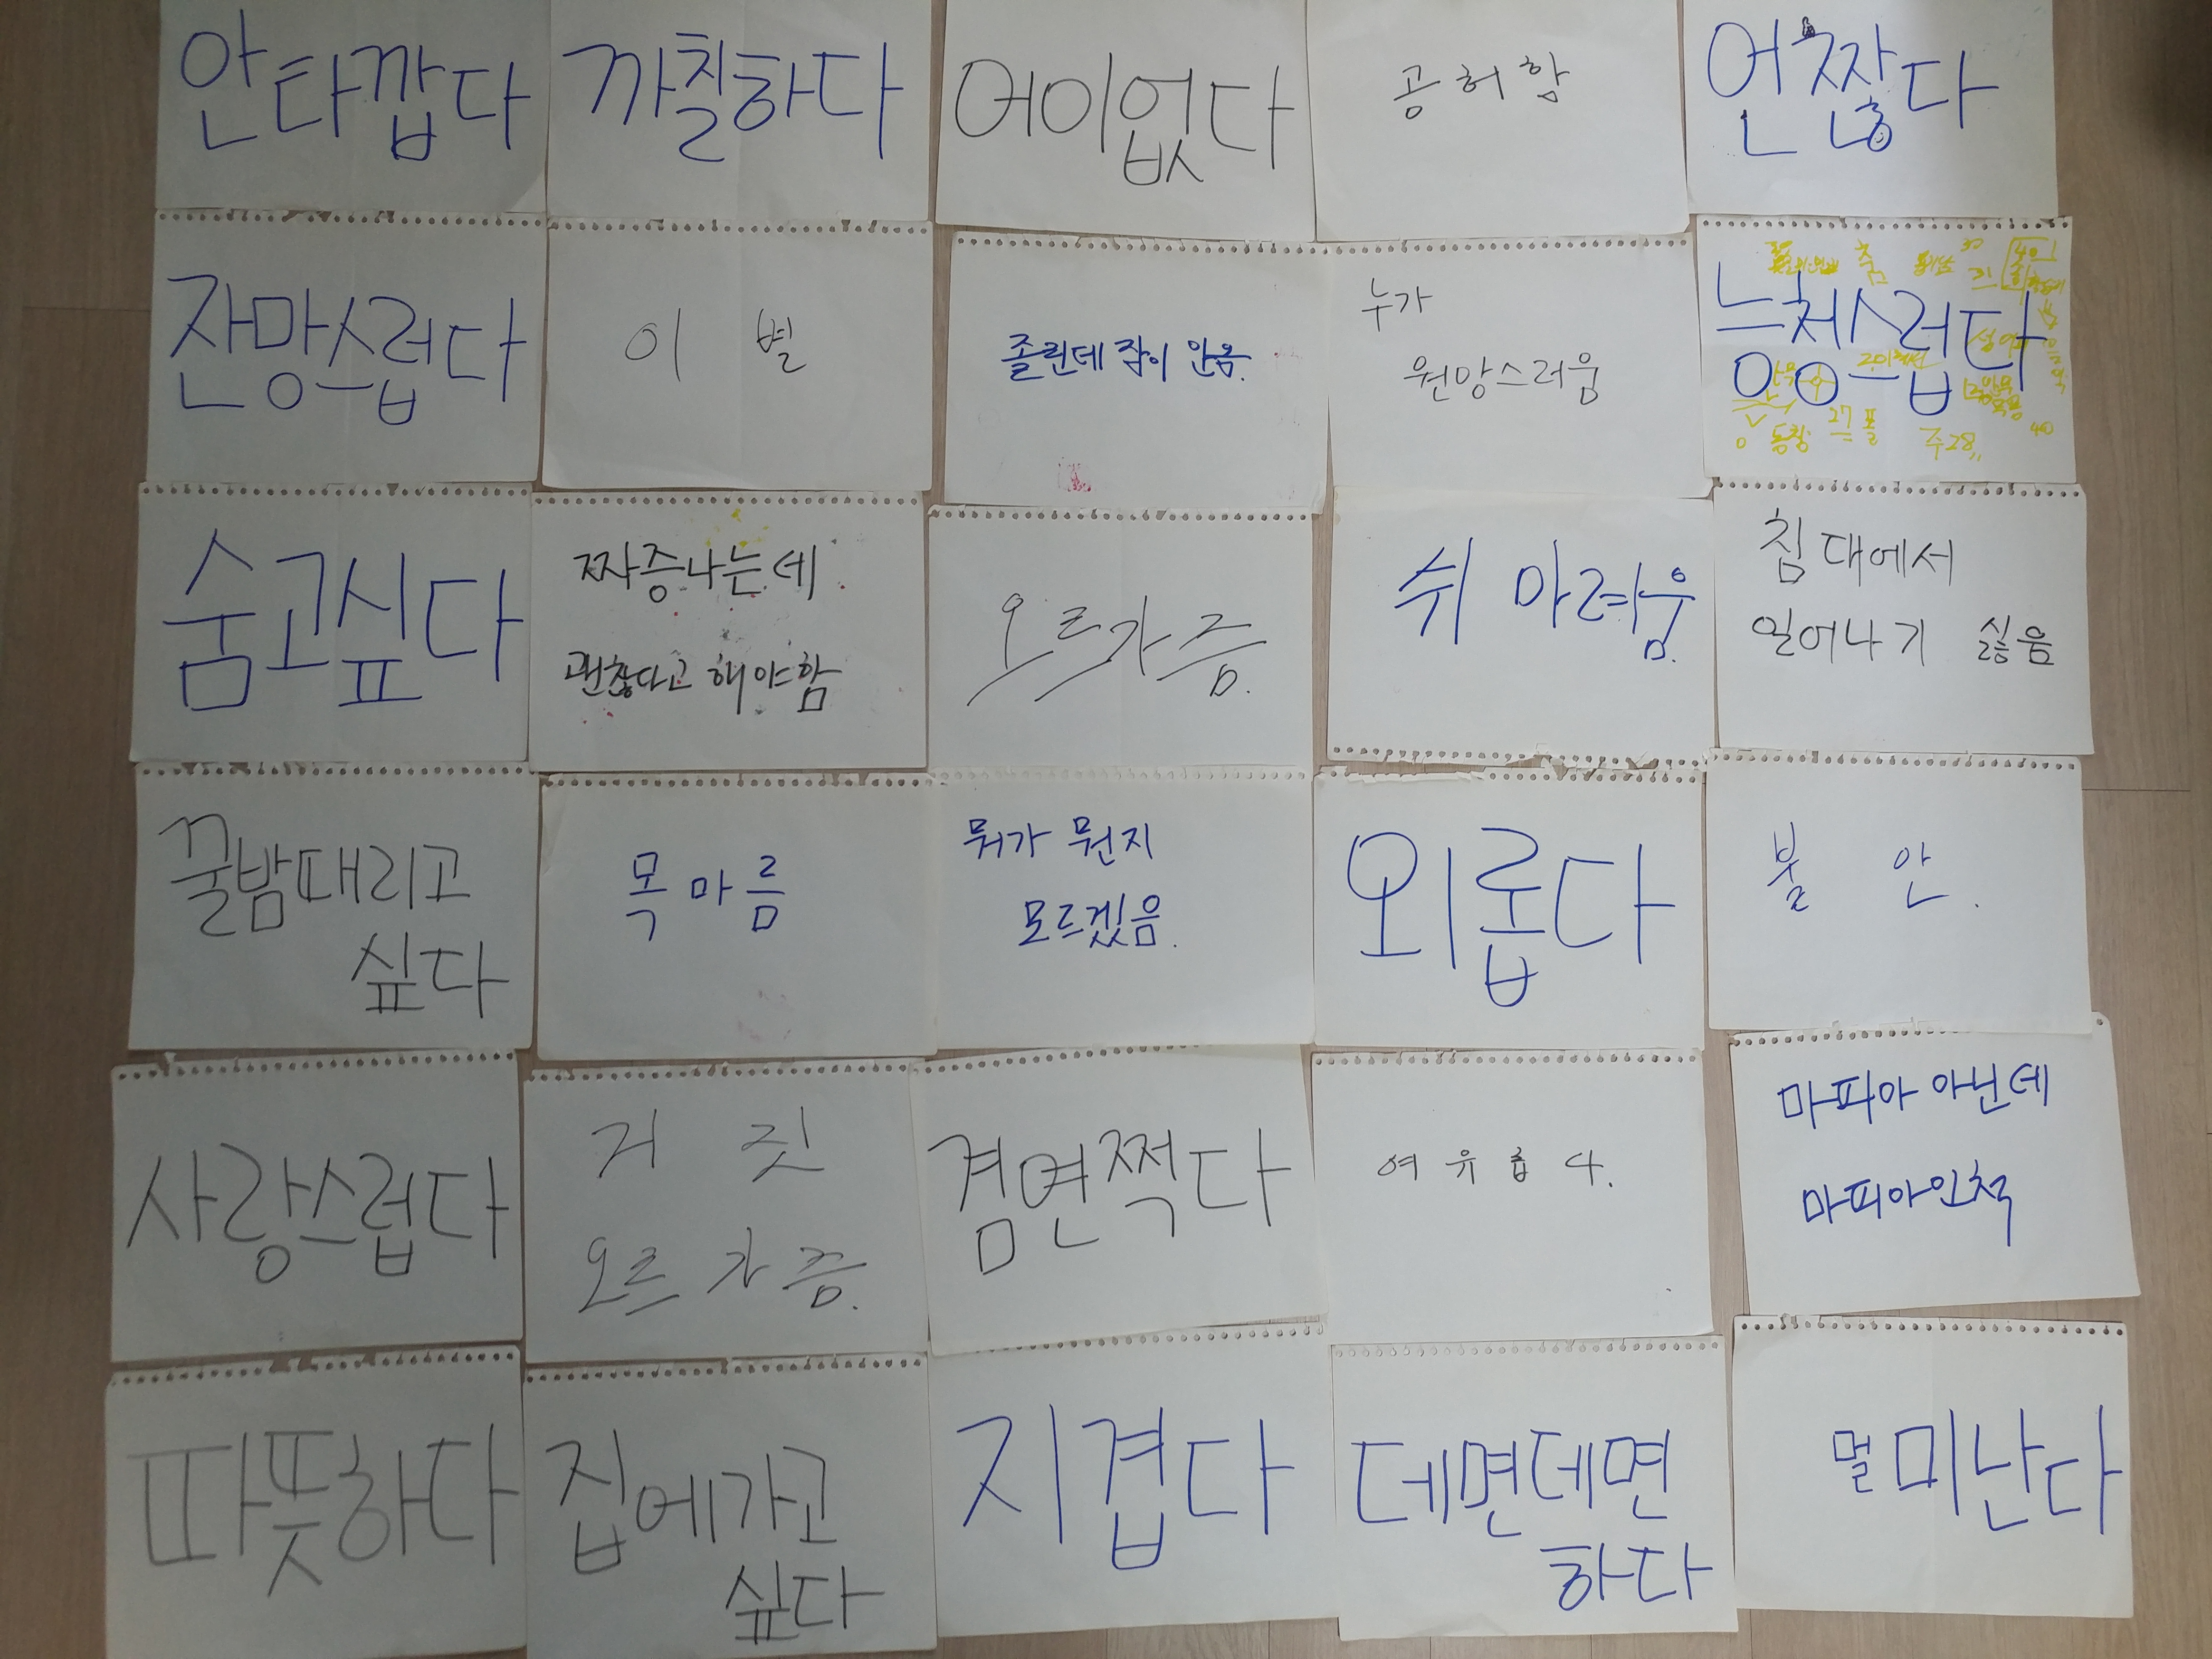 안타깝다
까칠하다
어이없다
공허함
언짢다
잔망스럽다
이별
졸린데 잠이 안옴.
누가
원망스러움
능청스럽다
27
주28,,
40
숨고싶다
짜증나는데
괜찮다고 해야함
오르가즘.
쉬 마려움.
침대에서
일어나기 싫음
꿀밤때리고
싶다
목마름
뭐가 뭔지
모르겠음.
외롭다
불안.
사랑스럽다
거짓
오르가즘.
겸연쩍다
여유롭다.
마피아 아닌데
마피아인척
따뜻하다
집에가고
싶다
지겹다
데면데면
하다
멀미난다